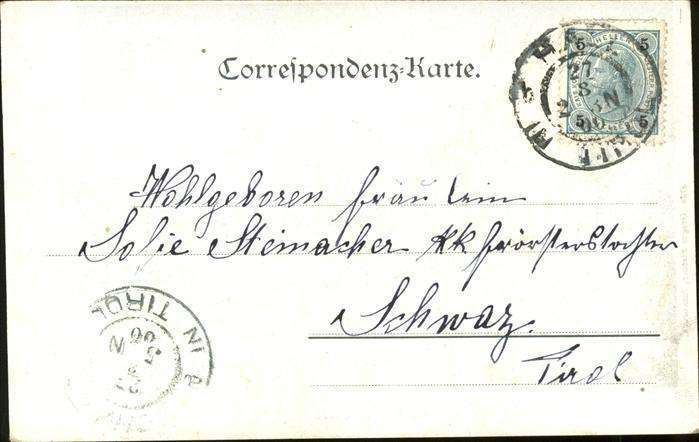 Correspondenz-Karte.
5 5
HELLER
5 5
21
8
00
Wohlgeboren Fräulein
Sofie Steinacher kk Förörsterstochter
Schwaz.
Tirol
IN TIROL